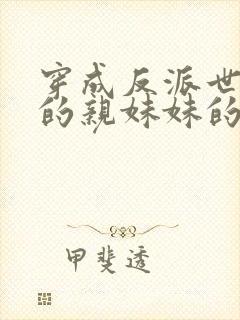 穿成反派世
的親妹妹的
甲斐透